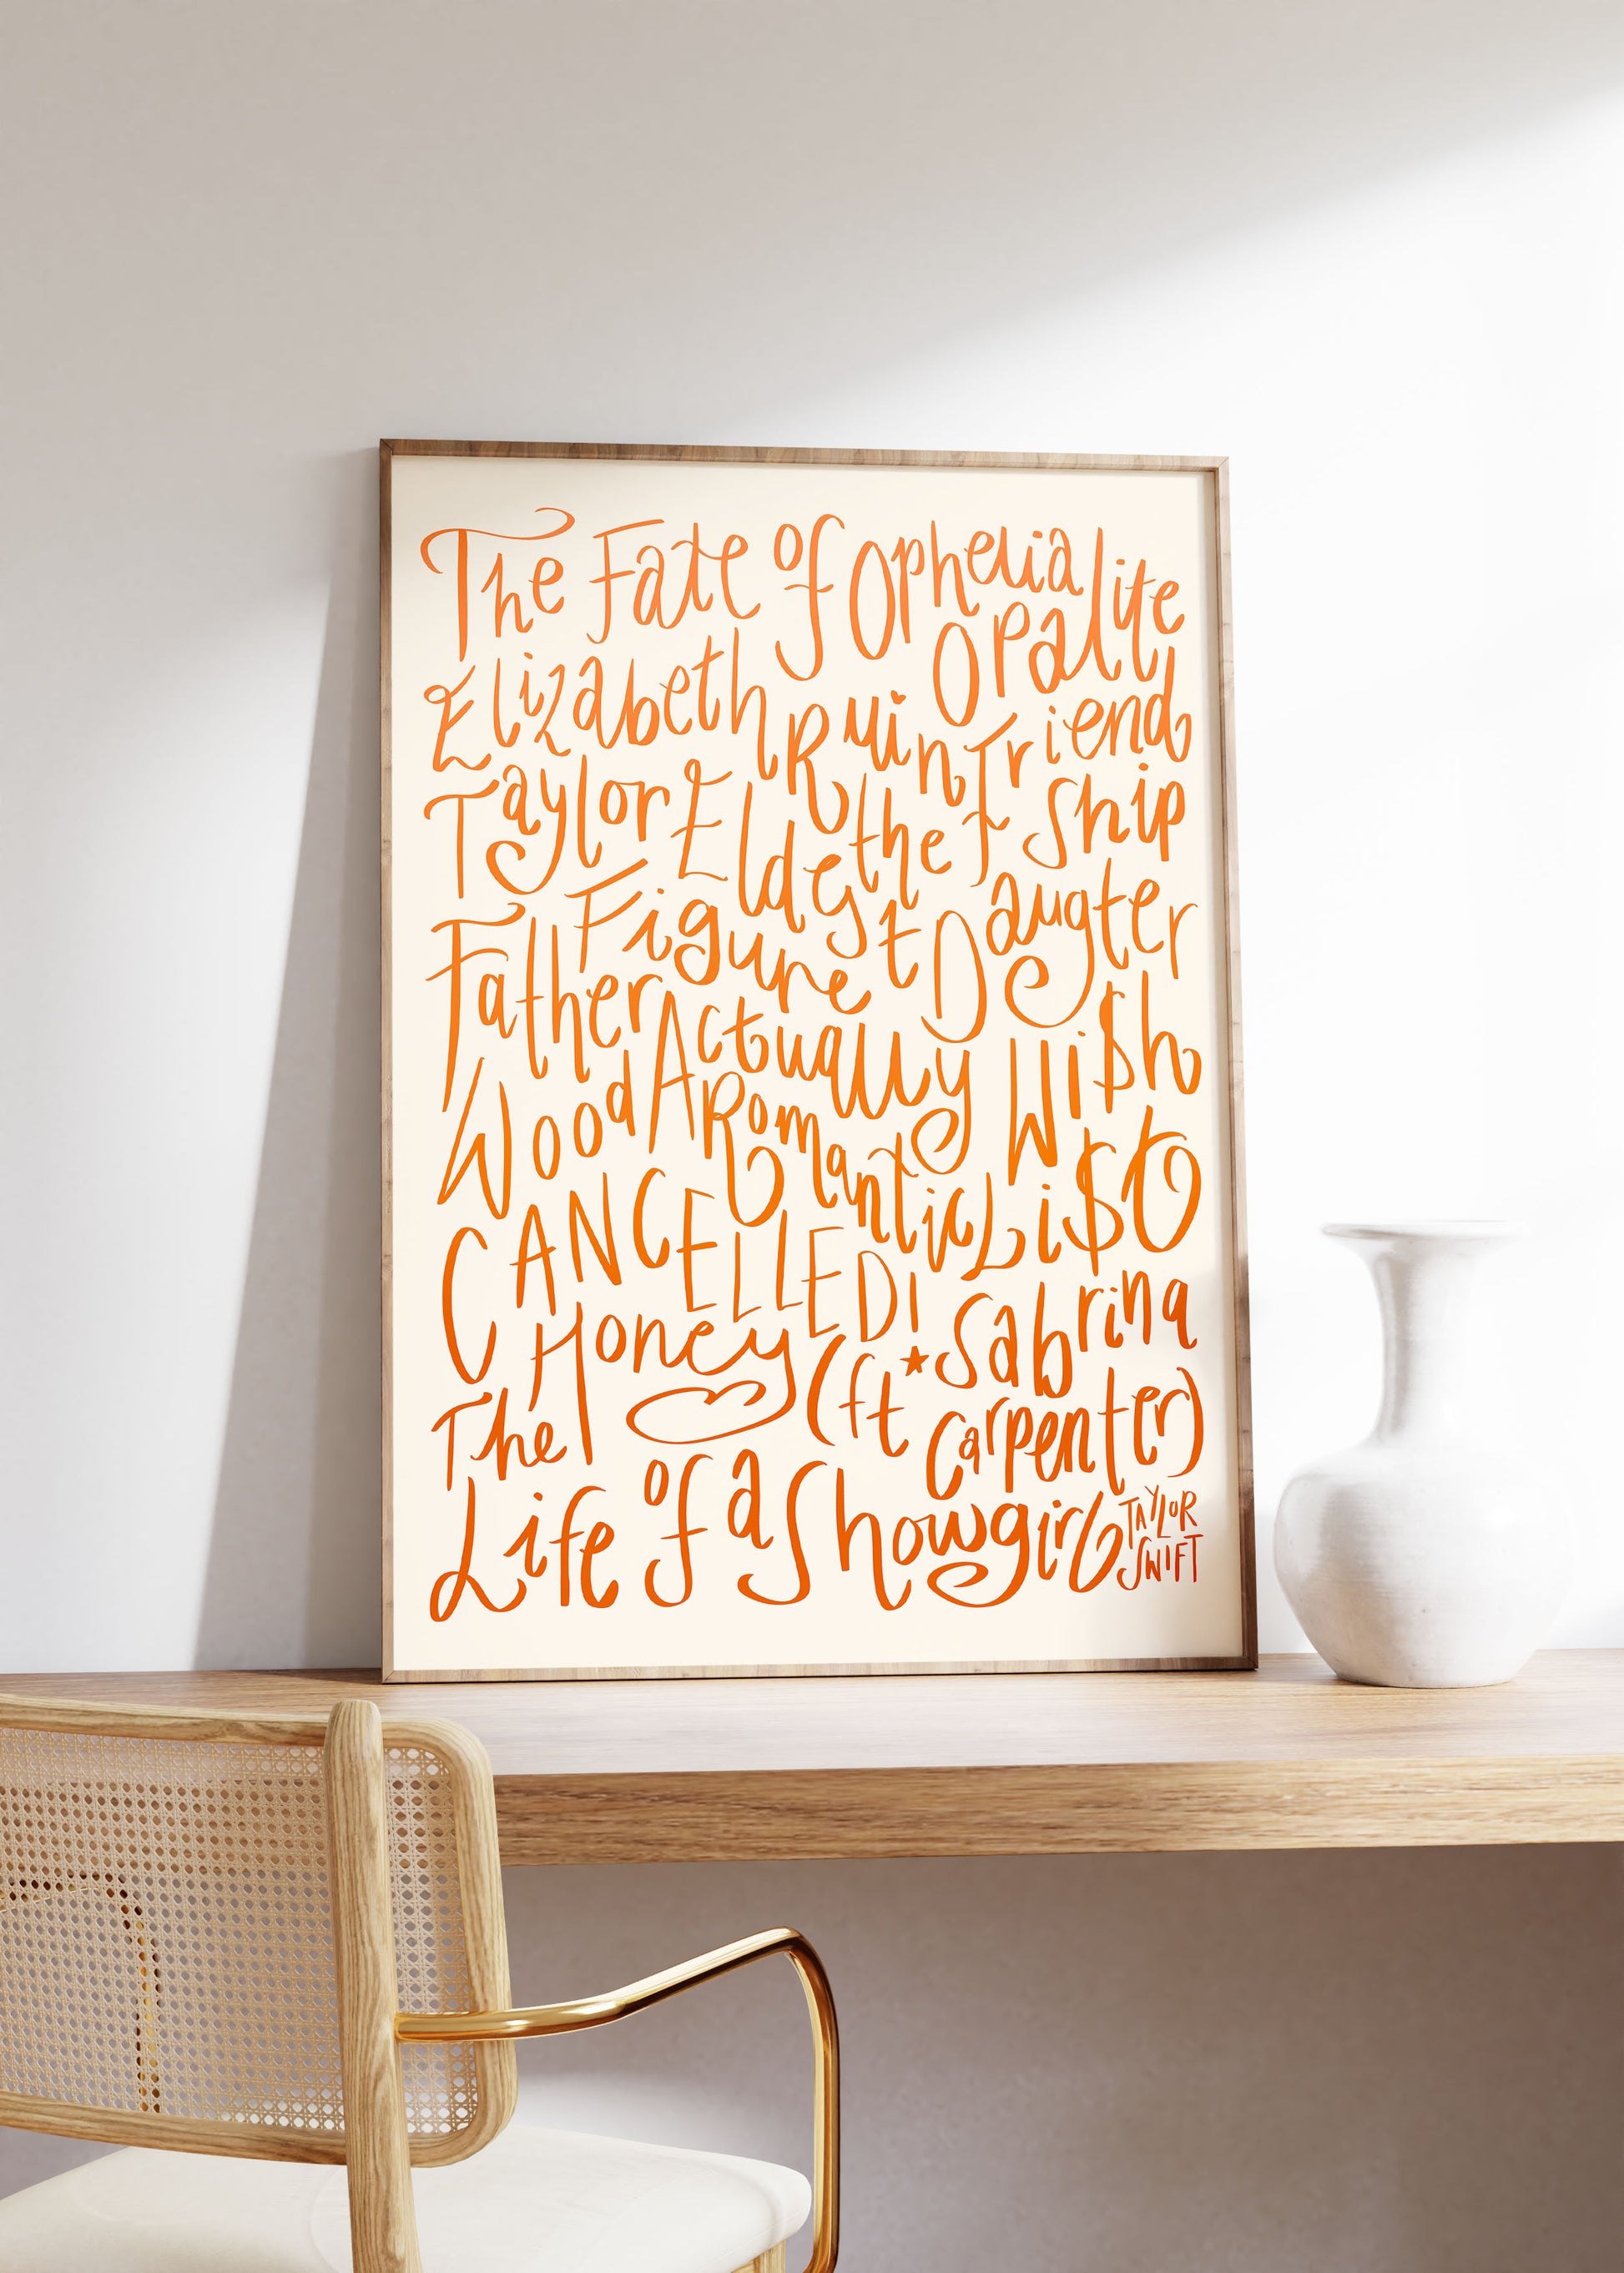 The Fate of Ophelia
Opalite
Elizabeth
Taylor
Ruin
the
Friend
Ship
Eldest Daugter
Father
Figure
Actually
Romantic
Wi$h
Li$t
Wood
CANCELLED!
Honey
(ft Sabrina
Carpenter)
The
Life of a Showgirl
TAYLOR
SWIFT